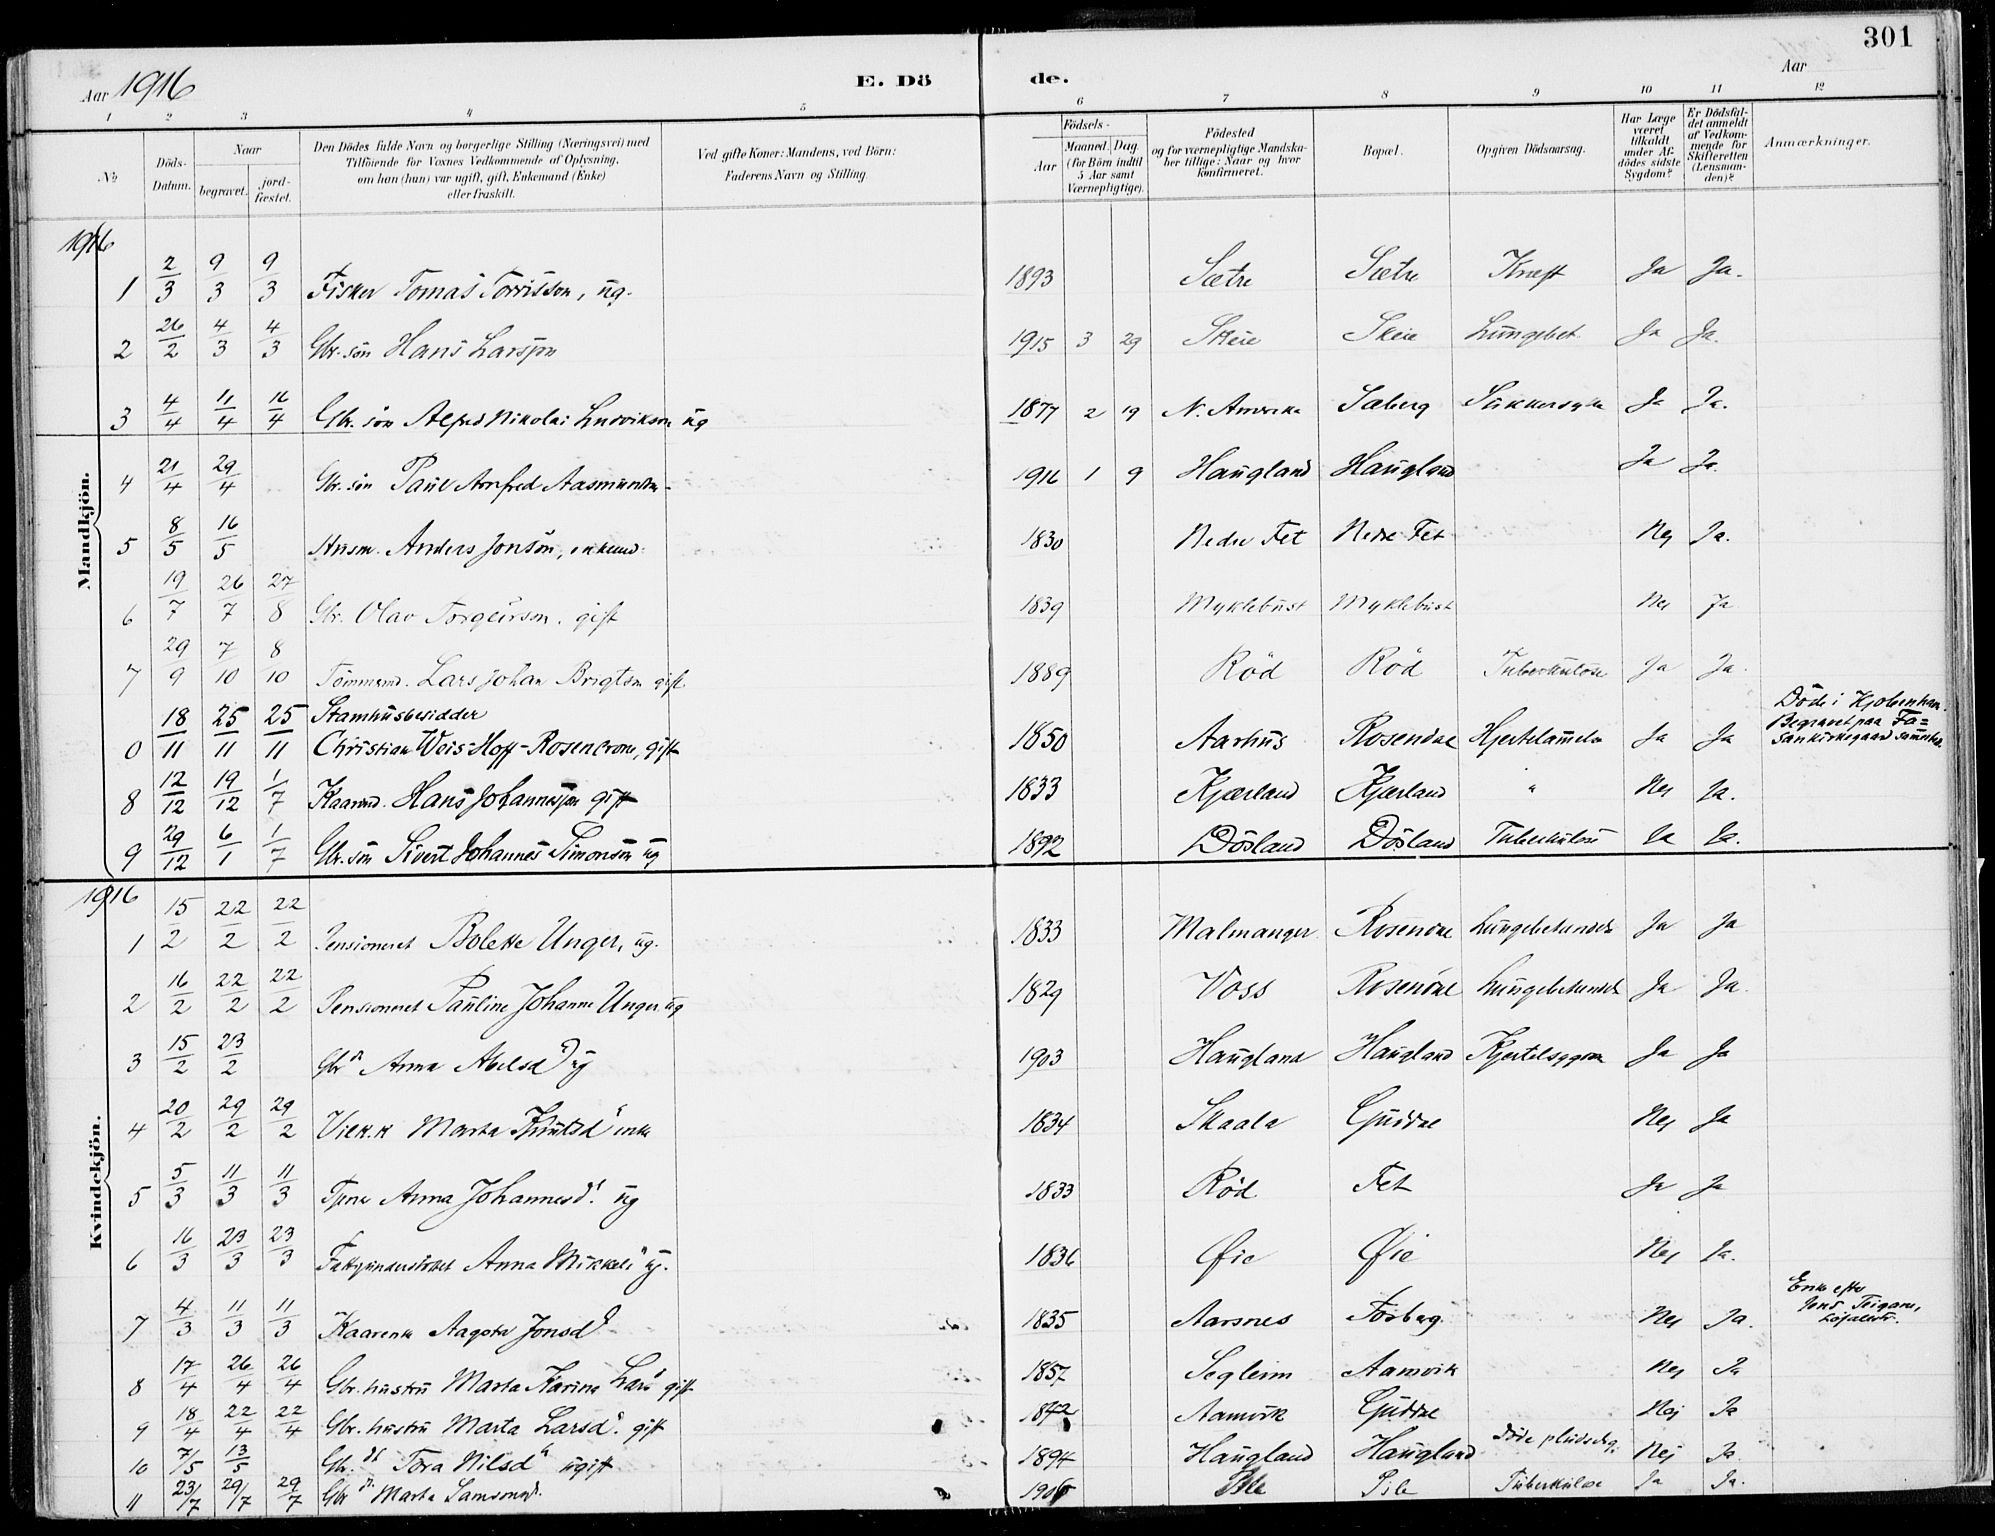 301
Aar 1916
E. Dö
de.
Aar
1 2 3 4 5 6 7 8 9 10 11 12
№
Döds-Datum.
Naar
begravet.
jord-fæstet.
Den Dödes fulde Navn og borgerlige Stilling (Næringsvei) med
Tilföiende for Voxnes Vedkommende af Oplysning,
om han (hun) var ugift, gift, Enkemand (Enke)
eller fraskilt.
Ved gifte Koner: Mandens, ved Börn:
Faderens Navn og Stilling.
Födsels-
Aar
Maaned. Dag.
(for Börn indtil
5 Aar samt
Værnepligtige).
Födested
og for værnepligtige Mandska-
ber tillige: Naar og hvor
konfirmeret.
Bopæl.
Opgiven Dödsaarsag.
Har Læge
været
tilkaldt
under Af-
dödes sidste
Sygdom?
Er Dödsfal-
det anmeldt
af Vedkom-
mende for
Skifteretten
(Lensman-
den)?
Anmærkninger.
Mandkjön.
1916
1 2/3 9/3 9/3 Fisker Tomas Torrisson, ug. 1893 Sætre Sætre Kræft Ja Ja.
2 26/2 4/3 4/3 Gbr. sön Hans Larsson 1915 3 29 Skeie Skeie Lungebet. Ja Ja.
3 4/4 11/4 16/4 Gbr. sön Alfred Nikolai Ludvikson ug 1877 2 19 N. Amerika Seberg Sukkersyke Ja Ja.
4 21/4 29/4 Gbr. sön Paul Arnfred Aasmundsn 1916 1 9 Haugland Haugland Ja Ja.
5 8/5 16/5 Husm. Anders Jonsön, enkem. 1830 Nedre Fet Nedre Fet Nej Ja.
6 19/7 26/7 27/8 Gbr. Olav Torgeirson, gift 1839 Myklebust Myklebust Nei Ja
7 29/9 7/10 8/10 Tömmermd. Lars Johan Brigtsøn gift 1889 Röd Röd Tuberkulose Ja Ja
0 18/11 25/11 25/11 Stamhusbesidder
Christian Weis-Hoff-Rosencrone, gift 1850 Aarhus Rosendal Hjertelammelse Ja Ja
Döde i Kjøbenhavn.
Begravet paa Fa=
sankirkegaard sammested.
8 12/12 19/12 1/7 Kaarmd. Hans Johannesson gift 1833 Kjærland Kjærland " Nej Ja.
9 29/12 6/1 1/7 Gbr. sön Sivert Johannes Simonsön ug 1892 Dösland Dösland Tuberkulose Ja Ja.
Kvindekjön.
1916
1 15/2 22/2 22/2 Pensioneret Bolette Unger, ug. 1833 Malmanger Rosendal Lungebetændels Ja Ja
2 16/2 22/2 22/2 Pensioneret Pauline Johanne Unger ug 1829 Voss Rosendal Lungebetændels Ja Ja.
3 15/2 23/2 Gbr dr Anna Abelsd ug 1903 Haugland Haugland Kjertelsygdom Ja Ja
4 20/2 29/2 29/2 Marta Knutsd enke 1834 Skaala Guddal Nej Ja
5 5/3 11/3 11/3 Tjene Anna Johannesd. ug 1833 Röd Fet Ja Ja
6 16/3 23/3 23/3 Fattigunderstöttet Anna Mikkels ug. 1836 Øie Øie Nej Ja.
7 4/3 11/3 11/3 Kaarenke Aagota Jonsd 1835 Aarsnes Forberg. Nej Ja.
Enke efter
Jens Teigane,
8 17/4 26/4 26/4 Gbr. hustru Marta Karina Lars gift 1857 Segleim Aamvik Nej Ja
9 18/4 22/4 22/4 Gbr. hustru Marta Larsd. gift 1842 Aamvik Guddal Nej Ja
10 7/5 13/5 Gbr. dr Tora Nilsd ugift 1894 Haugland Haugland Döde pludselig. Nej Ja.
11 23/7 29/7 29/7 Gbr dr Marta Samsonsd. 1906 Pile Tuberkulose Ja Ja.